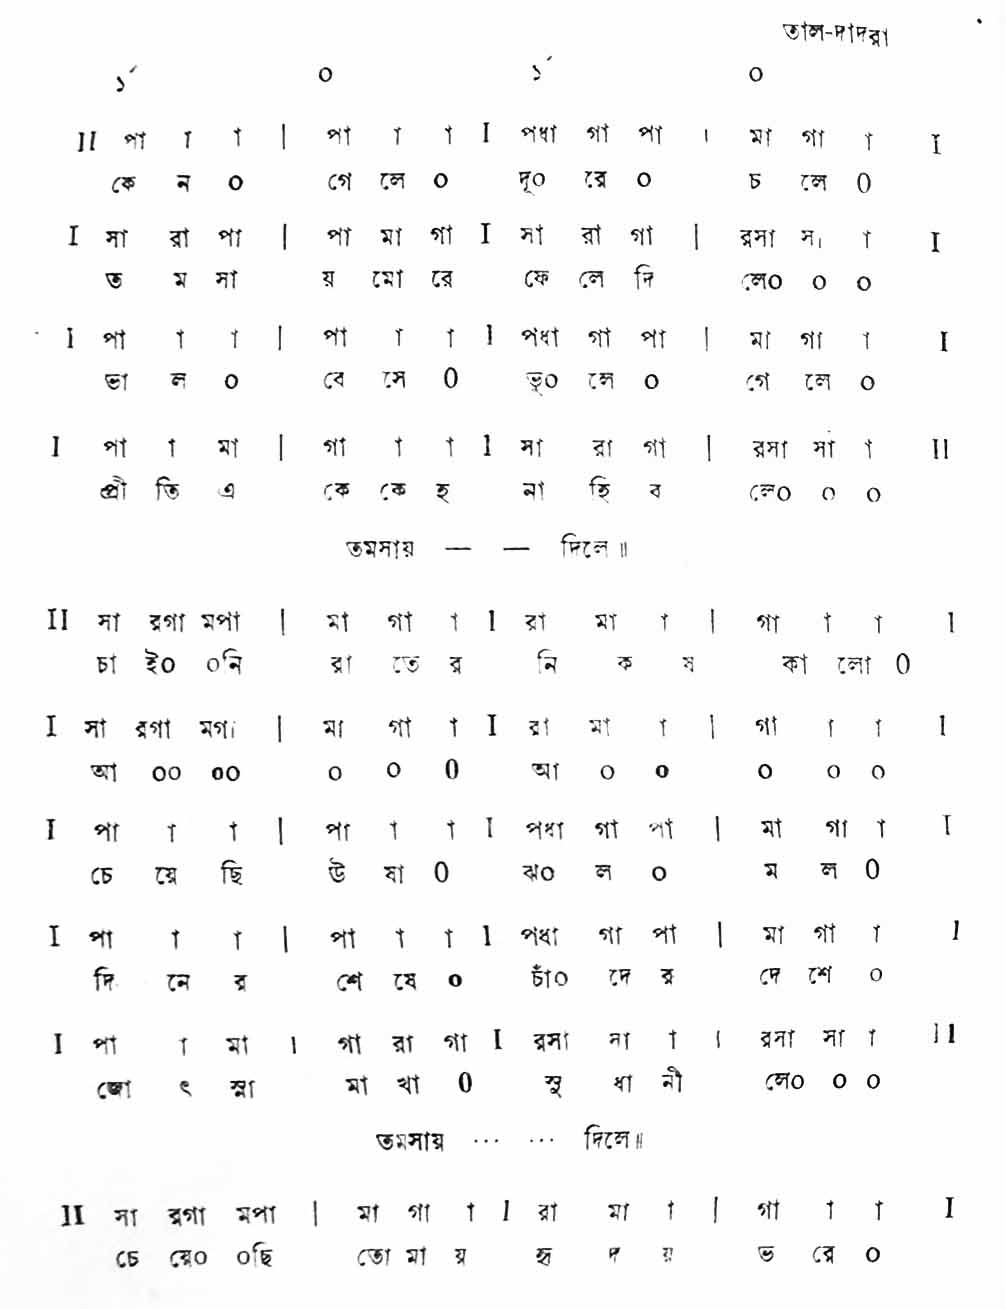 তাল-দাদরা
১´ ০ ১´ ০
II পা া া | পা া া I পধা গা পা । মা গা া I
কে ন ০ গে লে ০ দূ০ রে ০ চ লে ০
I সা রা পা | পা মা গা I সা রা গা | রসা সা া I
ত ম সা য় মো রে ফে লে দি লে০ ০ ০
I পা া া | পা া া I পধা গা পা | মা গা া I
ভা ল ০ বে সে ০ ভূ০ লে ০ গে লে ০
I পা া মা | গা া া I সা রা গা | রসা সা া II
প্রী তি এ কে কে হ না হি ব লে০ ০ ০
তমসায় — — দিলে॥
II সা রগা মপা | মা গা া I রা মা া | গা া া I
চা ই০ ০নি রা তে র নি ক ষ কা লো ০
I সা রগা মগা | মা গা া I রা মা া | গা া া I
আ ০০ ০০ ০ ০ ০ আ ০ ০ ০ ০ ০
I পা া া | পা া া I পধা গা পা | মা গা া I
চে য়ে ছি উ ষা ০ ঝ০ ল ০ ম ল ০
I পা া া | পা া া I পধা গা পা | মা গা া I
দি নে র শে ষে ০ চাঁ০ দে র দে শে ০
I পা া মা । গা রা গা I রসা সা া । রসা সা া II
জ্যো ৎ স্না মা খা ০ সু ধা নী লে০ ০ ০
তমসায় ··· ··· দিলে॥
II সা রগা মপা | মা গা া I রা মা া | গা া া I
চে য়ে০ ০ছি তো মা য় হৃ দ য় ভ রে ০